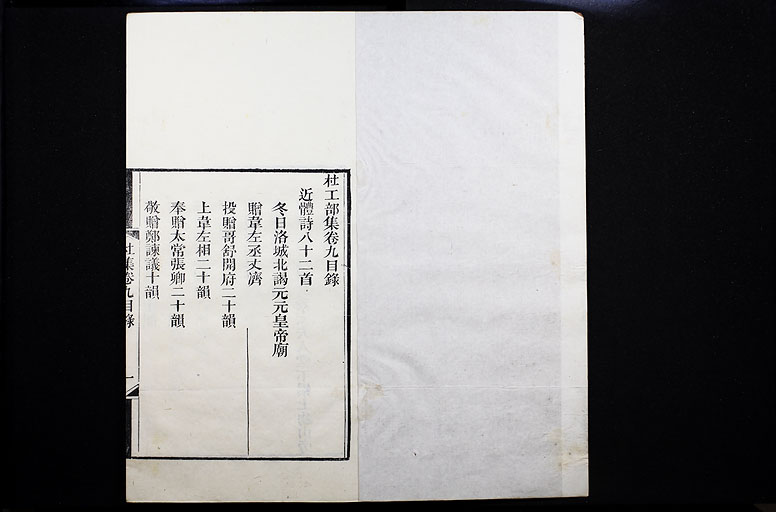 杜工部集卷九目錄
近體詩八十二首
冬日洛城北謁元元皇帝廟
贈韋左丞丈濟
投贈哥舒開府二十韻
上韋左相二十韻
奉贈太常張卿二十韻
敬贈鄭諫議十韻
杜集卷九目錄
一